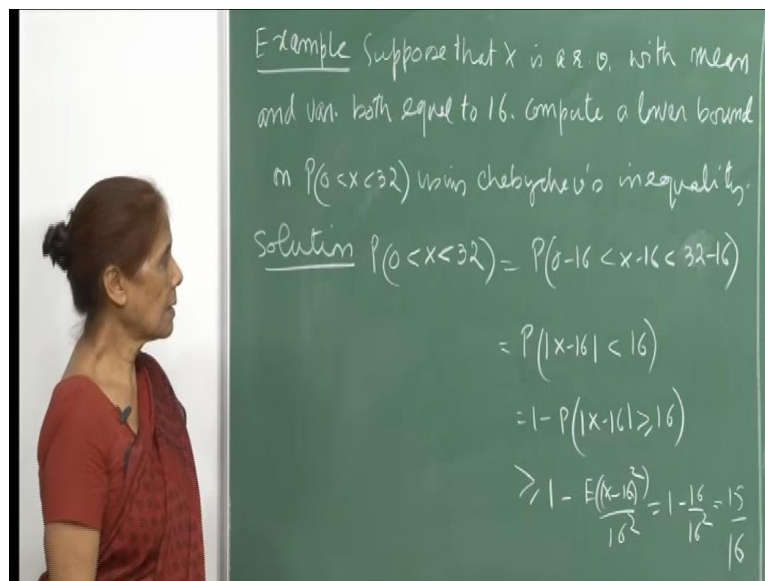 Example Suppose that X is a r.v. with mean
and var. both equal to 16. Compute a lower bound
on P(0<X<32) using chebychev's inequality.
Solution P(0<X<32) = P(0-16 < X-16 < 32-16)
= P(|X-16| < 16)
= 1 - P(|X-16| ≥ 16)
≥ 1 - E((X-16)²)/16² = 1 - 16/16² = 15/16